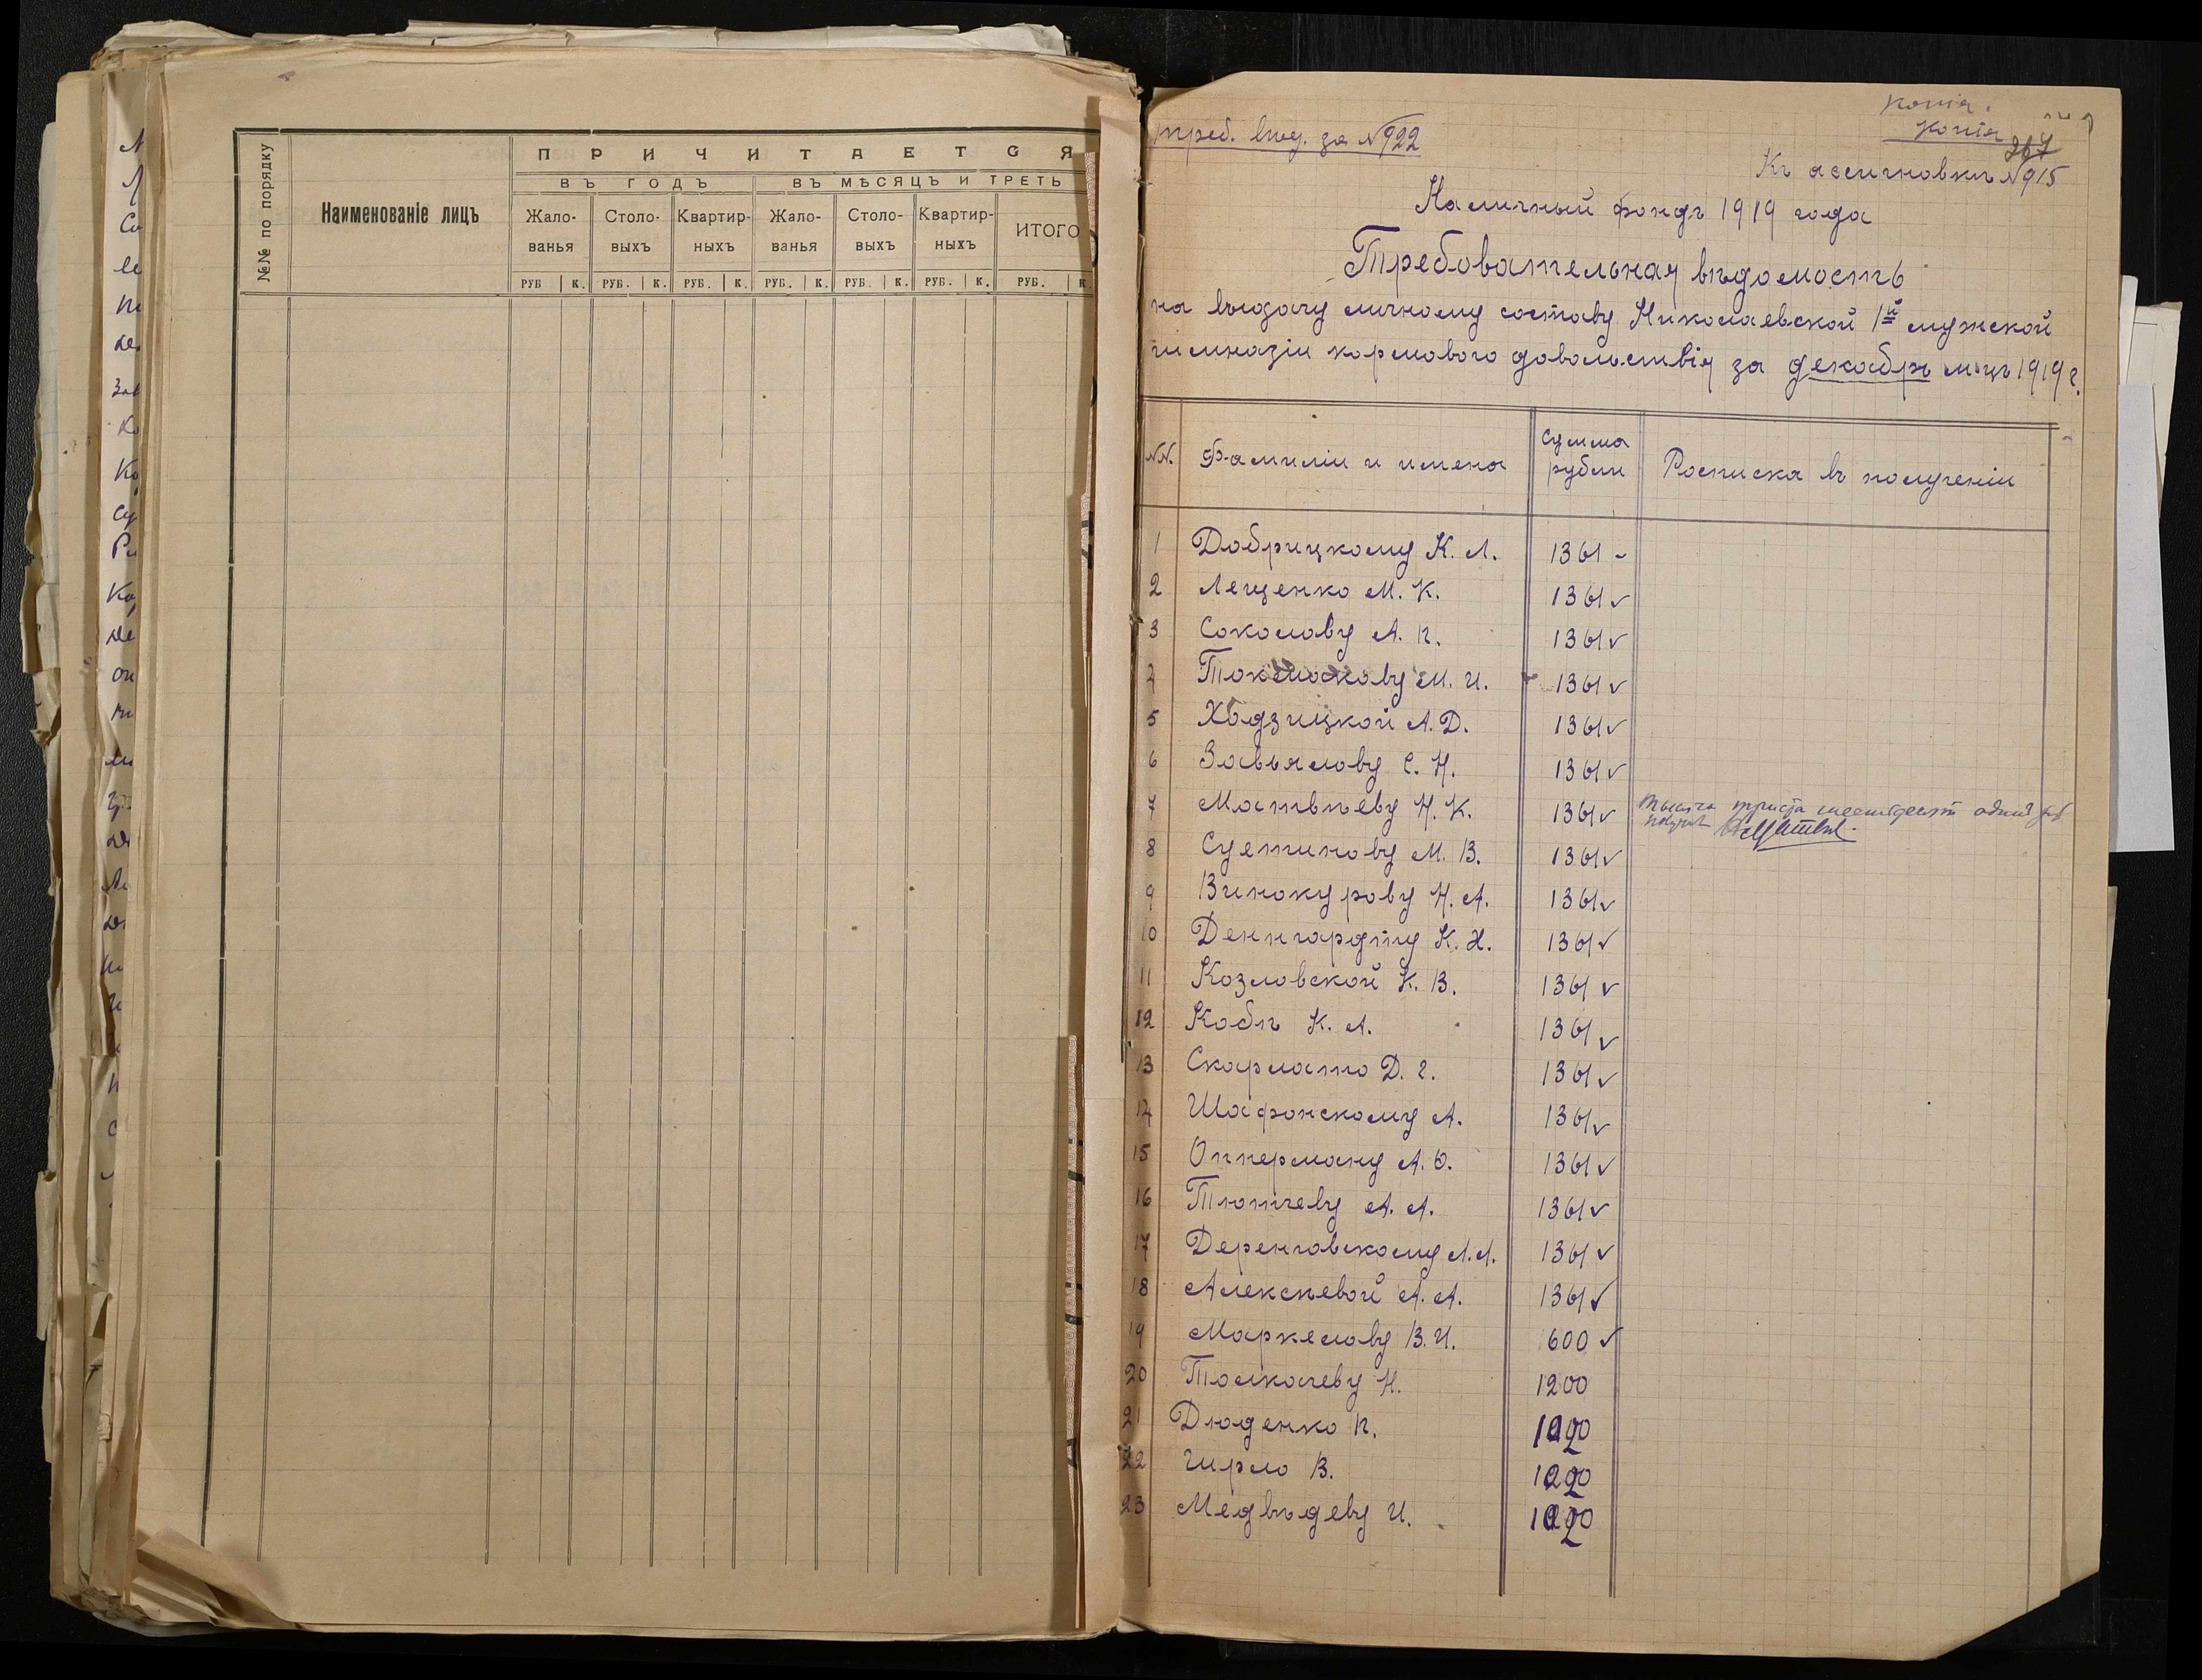 №№ по порядку
Наименованіе лицъ
ПРИЧИТАЕТСЯ
ВЪ ГОДЪ
ВЪ МѢСЯЦЪ И ТРЕТЬ
Жало-
ванья
Столо-
выхъ
Квартир-
ныхъ
Жало-
ванья
Столо-
выхъ
Квартир-
ныхъ
ИТОГО
РУБ К. РУБ. К. РУБ. К. РУБ. К. РУБ. К. РУБ. К. РУБ. К.
копія.
треб. вѣд. за №922
копія
267
Къ ассигновкѣ №915
Наличный фондъ 1919 года
Требовательная вѣдомость
на выдачу личному составу Николаевской 1й мужской
гимназіи кормового довольствія за декабрь м-цъ 1919 г.
№№. Фамиліи и имена
Сумма
рубли
Росписка въ полученіи
1 Добрицкому К. Л. 1361 -
2 Лещенко М. К. 1361 ✓
3 Соколову А. П. 1361 ✓
4 Токмакову М. И. 1361 ✓
5 Ходзицкой А. Д. 1361 ✓
6 Завьялову С. Н. 1361 ✓
7 Матвѣеву Н. К. 1361 ✓ тысяча триста шестьдесят один руб
получил
8 Суетинову М. В. 1361 ✓
9 Винокурову Н. А. 1361 ✓
10 Денгардту К. Х. 1361 ✓
11 Козловской К. В. 1361 ✓
12 Кобѣ К. А. 1361 ✓
13 Скарлато Д. Г. 1361 ✓
14 Шафонскому А. 1361 ✓
15 Опперману А. Ю. 1361 ✓
16 Тютчеву А. А. 1361 ✓
17 Деренговскому А. А. 1361 ✓
18 Алексѣевой А. А. 1361 ✓
19 Маркелову В. И. 600 ✓
20 Толкачеву Н. 1200
21 Дюденко П. 1200
22 Гирло В. 1200
23 Медвѣдеву И. 1200